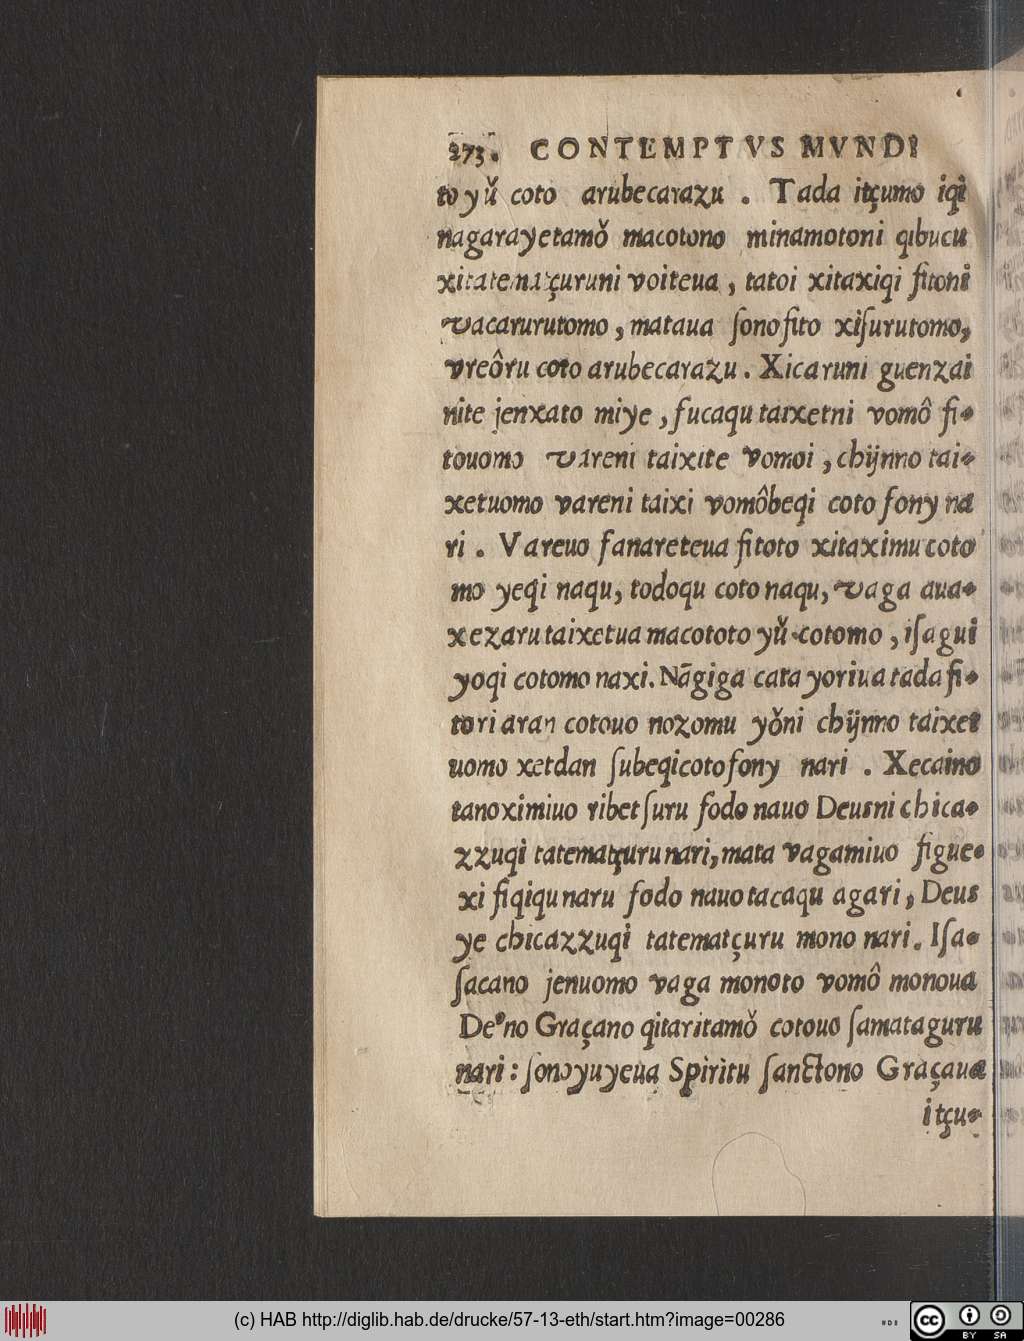 273. CONTEMPTVS MVNDI
to yǔ coto arubecarazu . Tada itçumo iqi
nagarayetamǒ macotono minamotoni qibucu
xitatematçuruni voiteua , tatoi xitaxiqi fitoni
vacarurutomo , mataua ſono fito xiſurutomo,
vreôru coto arubecarazu . Xicaruni guenzai
nite jenxato miye , fucaqu taixetni vomô fi-
touomo vareni taixite vomoi , chijnno tai-
xetuomo vareni taixi vomôbeqi coto fony na
ri . Vareuo fanareteua fitoto xitaximu coto
mo yeqi naqu, todoqu coto naqu, vaga aua-
xezaru taixetua macototo yǔ cotomo , iſagui
yoqi cotomo naxi. Nãgiga cata yoriua tada fi-
tori aran cotouo nozomu yǒni chijnno taixet
uomo xetdan ſubeqicoto fony nari . Xecaino
tanoximiuo ribet ſuru fodo nauo Deusni chica-
zzuqi tatematçuru nari, mata vagamiuo figue-
xi fiqiqu naru fodo nauo tacaqu agari, Deus
ye chicazzuqi tatematçuru mono nari. Iſa-
ſacano jenuomo vaga monoto vomô monoua
Deꝰno Graçano qitaritamǒ cotouo ſamataguru
nari : ſono yuyeua Spiritu ſanctono Graçaua
itçu-
(c) HAB http://diglib.hab.de/drucke/57-13-eth/start.htm?image=00286
cc BY SA